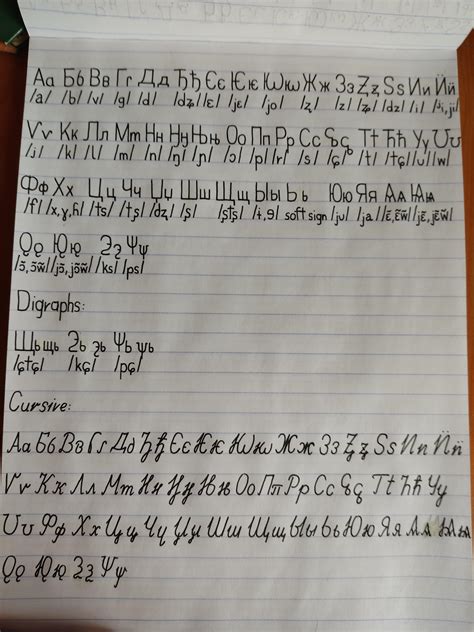 Аа Бб Вв Гг Дд Ђђ Єє Ѥѥ Жж Зз Ѕѕ Ии Йй
/a/ /b/ /v/ /g/ /d/ /dʑ/ /ɛ/ /jɛ/ /jo/ /ʐ/ /z/ /ʑ/ /dz/ /i/ /ɨ, ji/
Ѵѵ Кк Лл Мм Нн Ңң Њњ Оо Пп Рр Сс Тт Ћћ Уу
/j/ /k/ /l/ /m/ /n/ /ŋ/ /ɲ/ /ɔ/ /p/ /r/ /s/ /ɕ/ /t/ /tɕ/ /u/ /w/
Фф Хх Цц Чч Џџ Шш Щщ Ыы Ьь Юю Яя Ѧѧ Ѩѩ
/f/ /x, ɣ, ɦ/ /ts/ /tʂ/ /dʐ/ /ʂ/ /ʂtʂ/ /ɨ, ɘ/ soft sign /ju/ /ja/ /ɛ̃, ɛw̃/ /jɛ̃, jɛw̃/
Ѱѱ
/ɔ̃, ɔw̃/ /jɔ̃, jɔw̃/ /ks/ /ps/
Digraphs:
Щь щь Ѱь ѱь
/ɕtɕ/ /kɕ/ /pɕ/
Cursive:
Аа Бб Вв Гг Дд Ђђ Єє Ѥѥ Жж Зз Ѕѕ Ии Йй
Ѵѵ Кк Лл Мм Нн Ңң Њњ Оо Пп Рр Сс Тт Ћћ Уу
Фф Хх Цц Чч Џџ Шш Щщ Ыы Ьь Юю Яя Ѧѧ Ѩѩ
Ѱѱ